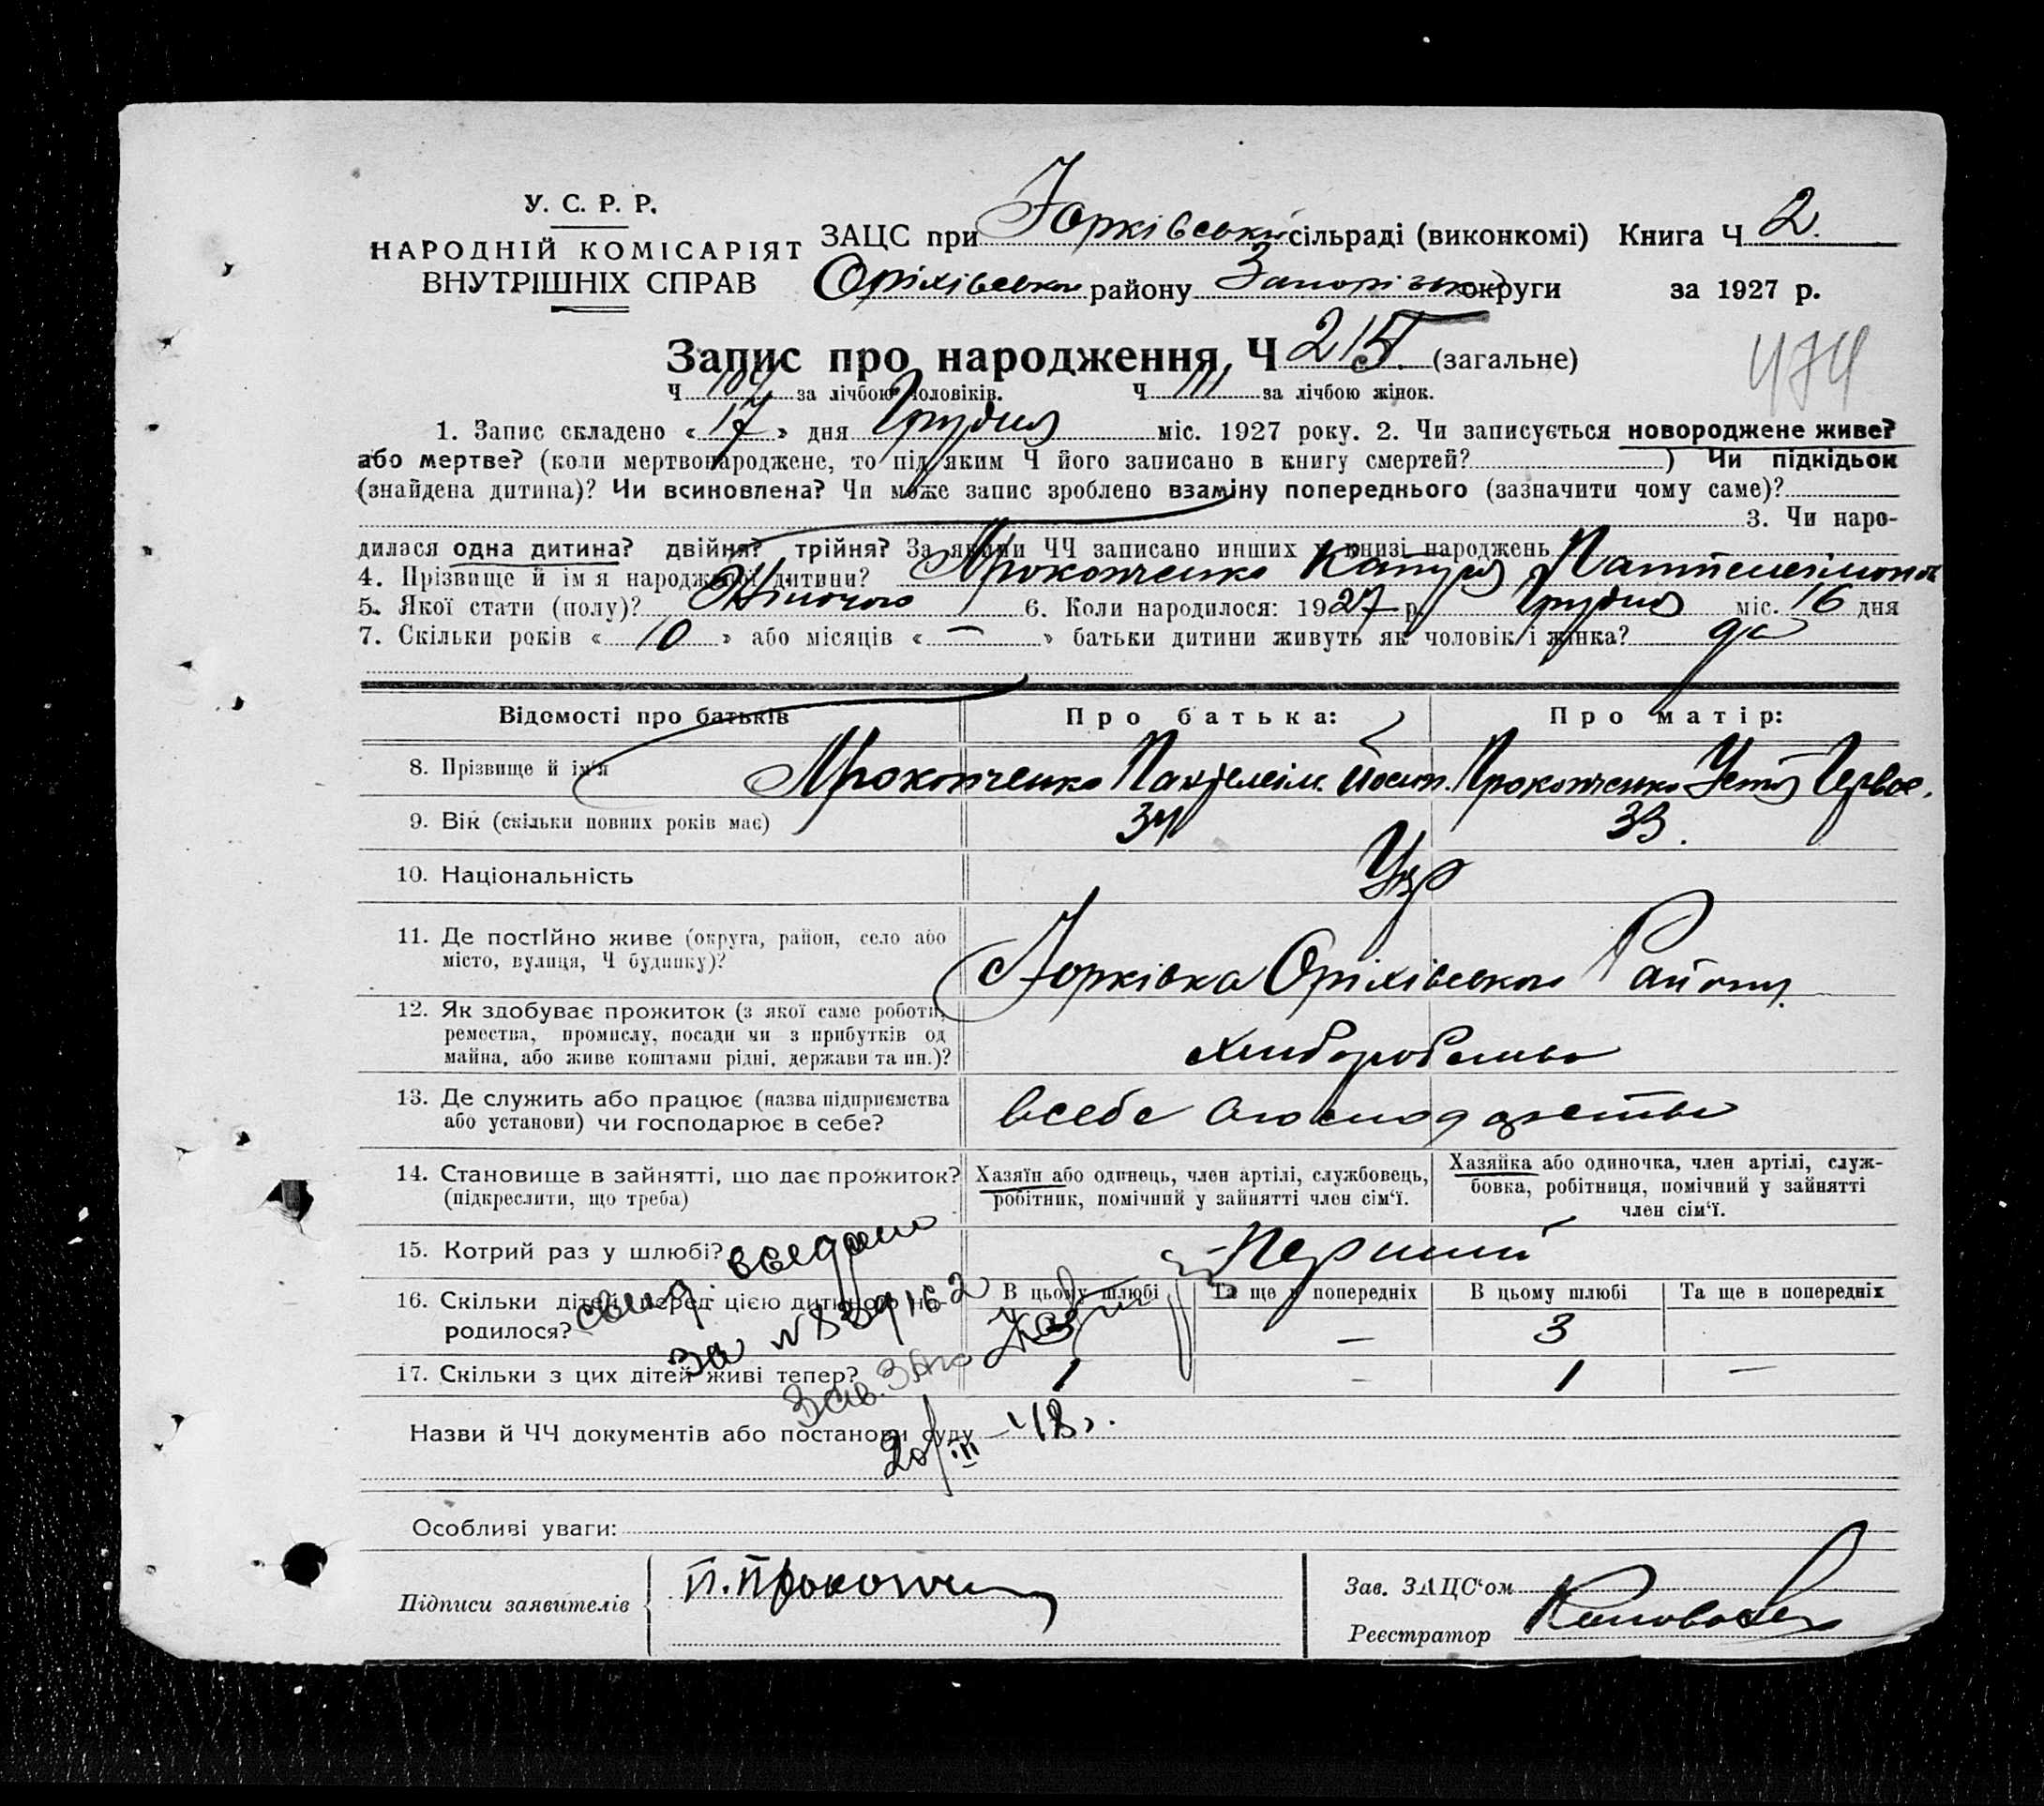 У. С. Р. Р.
НАРОДНІЙ КОМІСАРІЯТ
ВНУТРІШНІХ СПРАВ
ЗАЦС при Юрківській сільраді (виконкомі) Книга Ч 2.
Оріхівського району Запорізької округи за 1927 р.
Запис про народження, Ч 215. (загальне)
474
Ч 104 за лічбою чоловіків. Ч 111 за лічбою жінок.
1. Запис складено « 17 » дня Грудня міс. 1927 року. 2. Чи записується новороджене живе?
або мертве? (коли мертвонароджене, то під яким Ч його записано в книгу смертей? ) Чи підкідьок
(знайдена дитина)? Чи всиновлена? Чи може запис зроблено взаміну попереднього (зазначити чому саме)?
3. Чи наро-
дилася одна дитина? двійня? трійня? За якими ЧЧ записано инших у книзі народжень
4. Прізвище й ім'я народженої дитини? Прокопченко Катря
5. Якої стати (полу)? Жіночого 6. Коли народилося: 1927 р. Грудня міс. 16 дня
7. Скільки років « 10 » або місяців « — » батьки дитини живуть як чоловік і жінка? да
Відомості про батьків Про батька: Про матір:
8. Прізвище й ім'я Прокопченко Пантелеім. Йосип. Прокопченко Устя
9. Вік (скільки повних років має) 34 33.
10. Національність Укр
11. Де постійно живе (округа, район, село або
місто, вулиця, Ч будинку)?
Юрківка Оріхівського Району.
12. Як здобуває прожиток (з якої саме роботи,
ремества, промислу, посади чи з прибутків од
майна, або живе коштами рідні, держави та ин.)?
хліборобство
13. Де служить або працює (назва підприємства
або установи) чи господарює в себе?
всебе
14. Становище в зайнятті, що дає прожиток?
(підкреслити, що треба)
Хазяїн або одинець, член артілі, службовець,
робітник, помічний у зайнятті член сім'ї.
Хазяйка або одиночка, член артілі, служ-
бовка, робітниця, помічний у зайнятті
член сім'ї.
15. Котрий раз у шлюбі? Перший
16. Скільки дітей перед цією дитиною на-
родилося?
В цьому шлюбі Та ще в попередніх В цьому шлюбі Та ще в попередніх
3 — 3
17. Скільки з цих дітей живі тепер? 1 — 1 —
свид. выдано
за №839162
Зав. Загс
20/III–48г.
Назви й ЧЧ документів або постанови суду
Особливі уваги:
Підписи заявителів
П. Прокопч
Зав. ЗАЦС'ом
Реєстратор